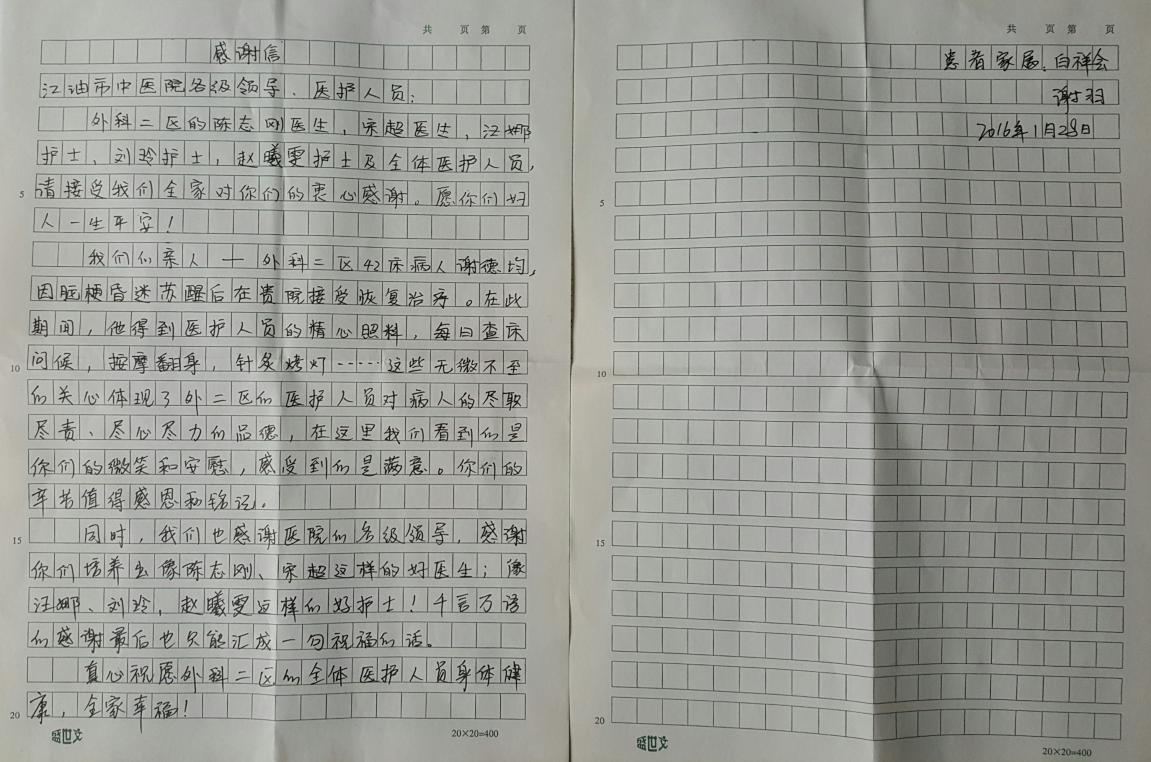 共 页 第 页
感谢信
江油市中医院各级领导、医护人员:
外科二区的陈志刚医生,宋超医生,汪娜
护士、刘玲护士,赵曦雯护士及全体医护人员,
5 请接受我们全家对你们的衷心感谢。愿你们好
人一生平安!
我们的亲人——外科二区42床病人谢德均,
因脑梗昏迷苏醒后在贵院接受恢复治疗。在此
期间,他得到医护人员的精心照料,每日查床
10 问候,按摩翻身,针炙烤灯……这些无微不至
的关心体现了外二区的医护人员对病人的尽职
尽责、尽心尽力的品德,在这里我们看到的是
你们的微笑和安慰,感受到的是满意。你们的
辛劳值得感恩和铭记。
15 同时,我们也感谢医院的各级领导,感谢
你们培养出像陈志刚、宋超这样的好医生;像
汪娜、刘玲,赵曦雯这样的好护士!千言万语
的感谢最后也只能汇成一句祝福的话。
真心祝愿外科二区的全体医护人员身体健
20 康,全家幸福!
盛世文
20×20=400
共 页 第 页
患者家属:白祥会
谢羽
2016年1月28日
5
10
15
20
盛世文
20×20=400